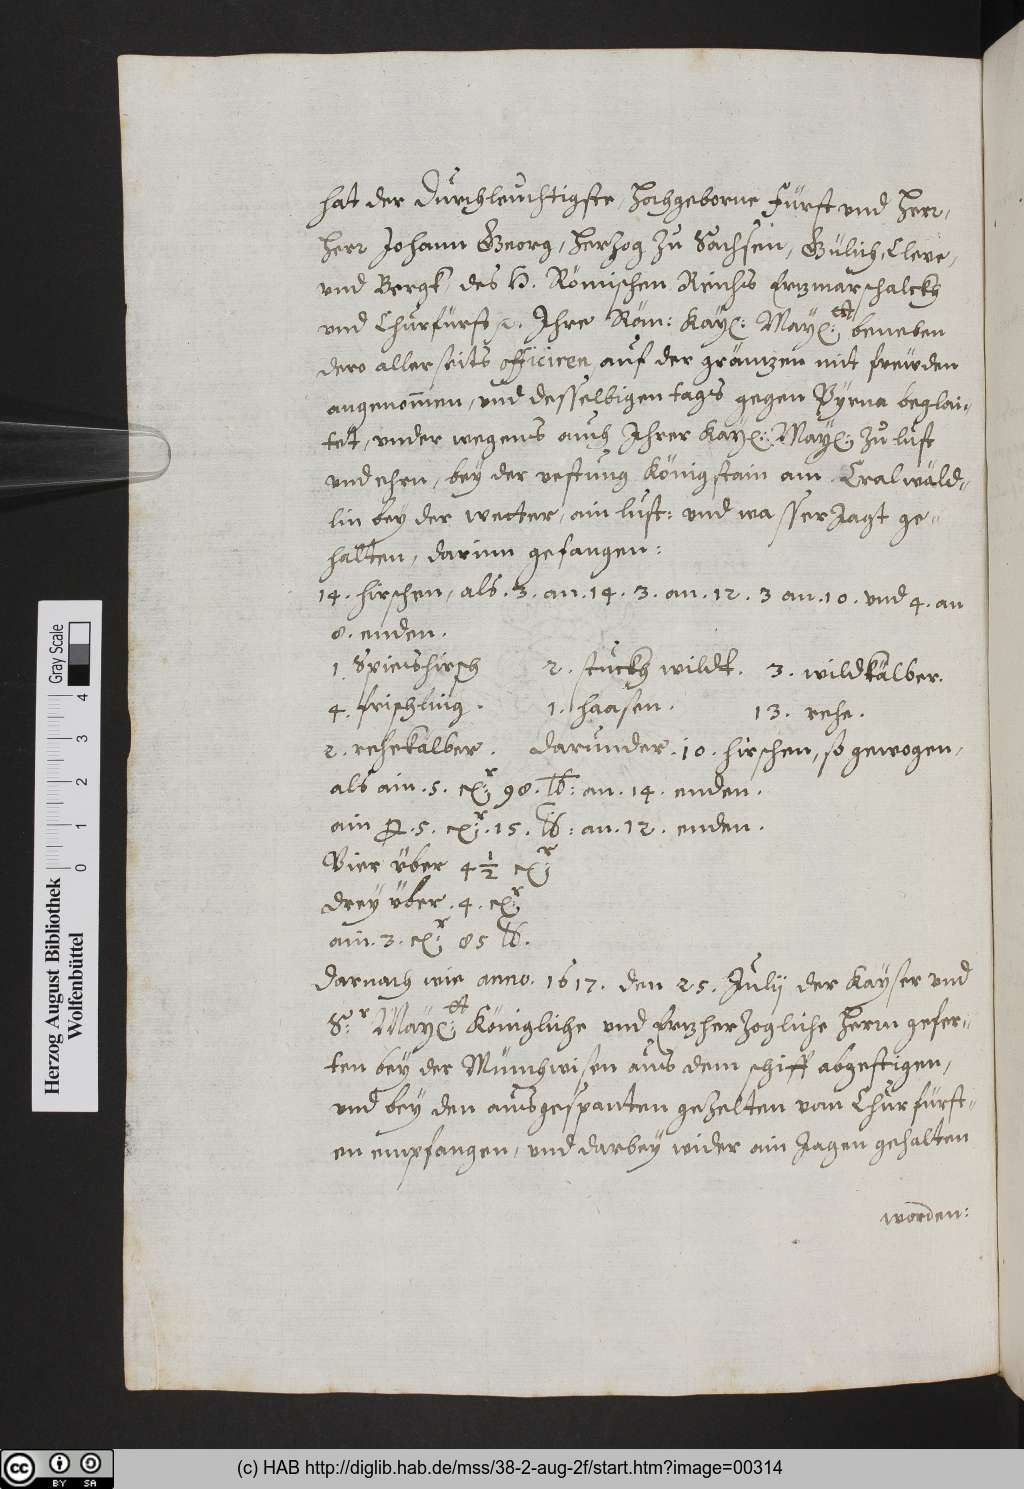 hat der Durchleuchtigste, Hochgeborne Fürst und Herr,
Herr Johann Georg, Herzog Zu Sachsen, Gülich, Cleve,
und Bergk, des H. Römischen Reichs Erzmarschalckh
und Churfürst etc. Ihre Röm: Kay: May: beneben
dero allerseits officiren auf der gräntzen mit frewden
angenommen, und desselbigen tags gegen Pyrna beglai=
tet, under wegens auch Ihrer Kay: May: zu lust
und ehrn, bey der vestung Königstain am wäld=
lin bey der wetter, ain lust: und wasser Jagt ge=
halten, darinn gefangen:
14. hirschen, als. 3. an. 14. 3. an. 12. 3 an. 10. und 4. an
8. enden.
1. Spieshirsch 2. stuckh wildt. 3. wildkälber.
4. frischling. 1. haasen. 13. rehe.
2. rehekälber. darunder. 10. hirschen, so gewogen,
als ain. 5. 98. lb: an. 14. enden.
ain 5. 15. lb: an. 12. enden.
Vier über 4 1/2
drey über. 4.
ain. 3. 85 lb.
Darnach wie anno. 1617. den 25. Julij der Kayser und
Sr May: Königliche und Erzherzogliche Herrn gefer=
ten bey der Münchwisen aus dem schiff abgestigen,
und bey den ausgespanten gezelten vom Churfürst=
en empfangen, und darbey wider ain Jagen gehalten
worden:
Herzog August Bibliothek
Wolfenbüttel
Gray Scale
0 1 2 3 4
cc BY SA
(c) HAB http://diglib.hab.de/mss/38-2-aug-2f/start.htm?image=00314